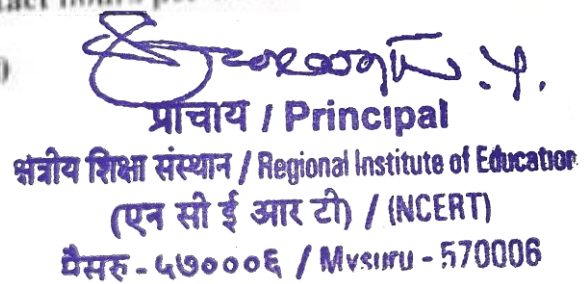 प्राचार्य / Principal
क्षेत्रीय शिक्षा संस्थान / Regional Institute of Education
(एन सी ई आर टी) / (NCERT)
मैसूरु - ५७०००६ / Mysuru - 570006